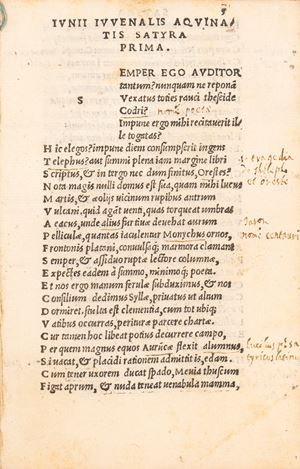 IVNII IVVENALIS AQVINA/
TIS SATYRA
PRIMA.
EMPER EGO AVDITOR
tantum? nunquam ne reponã
S Vexatus toties rauci theseide
Codri?
Impune ergo mihi recitauerit il/
le togatas?
H ic elegos? impune diem consumpserit ingens
T elephus? aut summi plena iam margine libri
S criptus, & in tergo nec dum finitus, Orestes?
N ota magis nulli domus est sua, quam mihi lucus
M artis, & æolijs uicinum rupibus antrum
V ulcani. quid agãt uenti, quas torqueat umbras
A eacus, unde alius furtiuæ deuehat aurum
P elliculæ, quantas iaculentur Monychus ornos,
F rontonis platani, conuulsaq; marmora clamant
S emper, & assiduo ruptæ lectore columnæ,
E xpectes eadem à summo, minimoq; poeta.
E t nos ergo manum ferulæ subduximus, & nos
C onsilium dedimus Syllæ, priuatus ut altum
D ormiret. stulta est clementia, cum tot ubiq;
V atibus occurras, perituræ parcere chartæ.
C ur tamen hoc libeat potius decurrere campo,
P er quem magnus equos Auruncæ flexit alumnus,
S i uacat, & placidi rationem admittitis, edam.
C um tener uxorem ducat spado, Meuia thuscum
F igat aprum, & nuda teneat uenabula mamma,